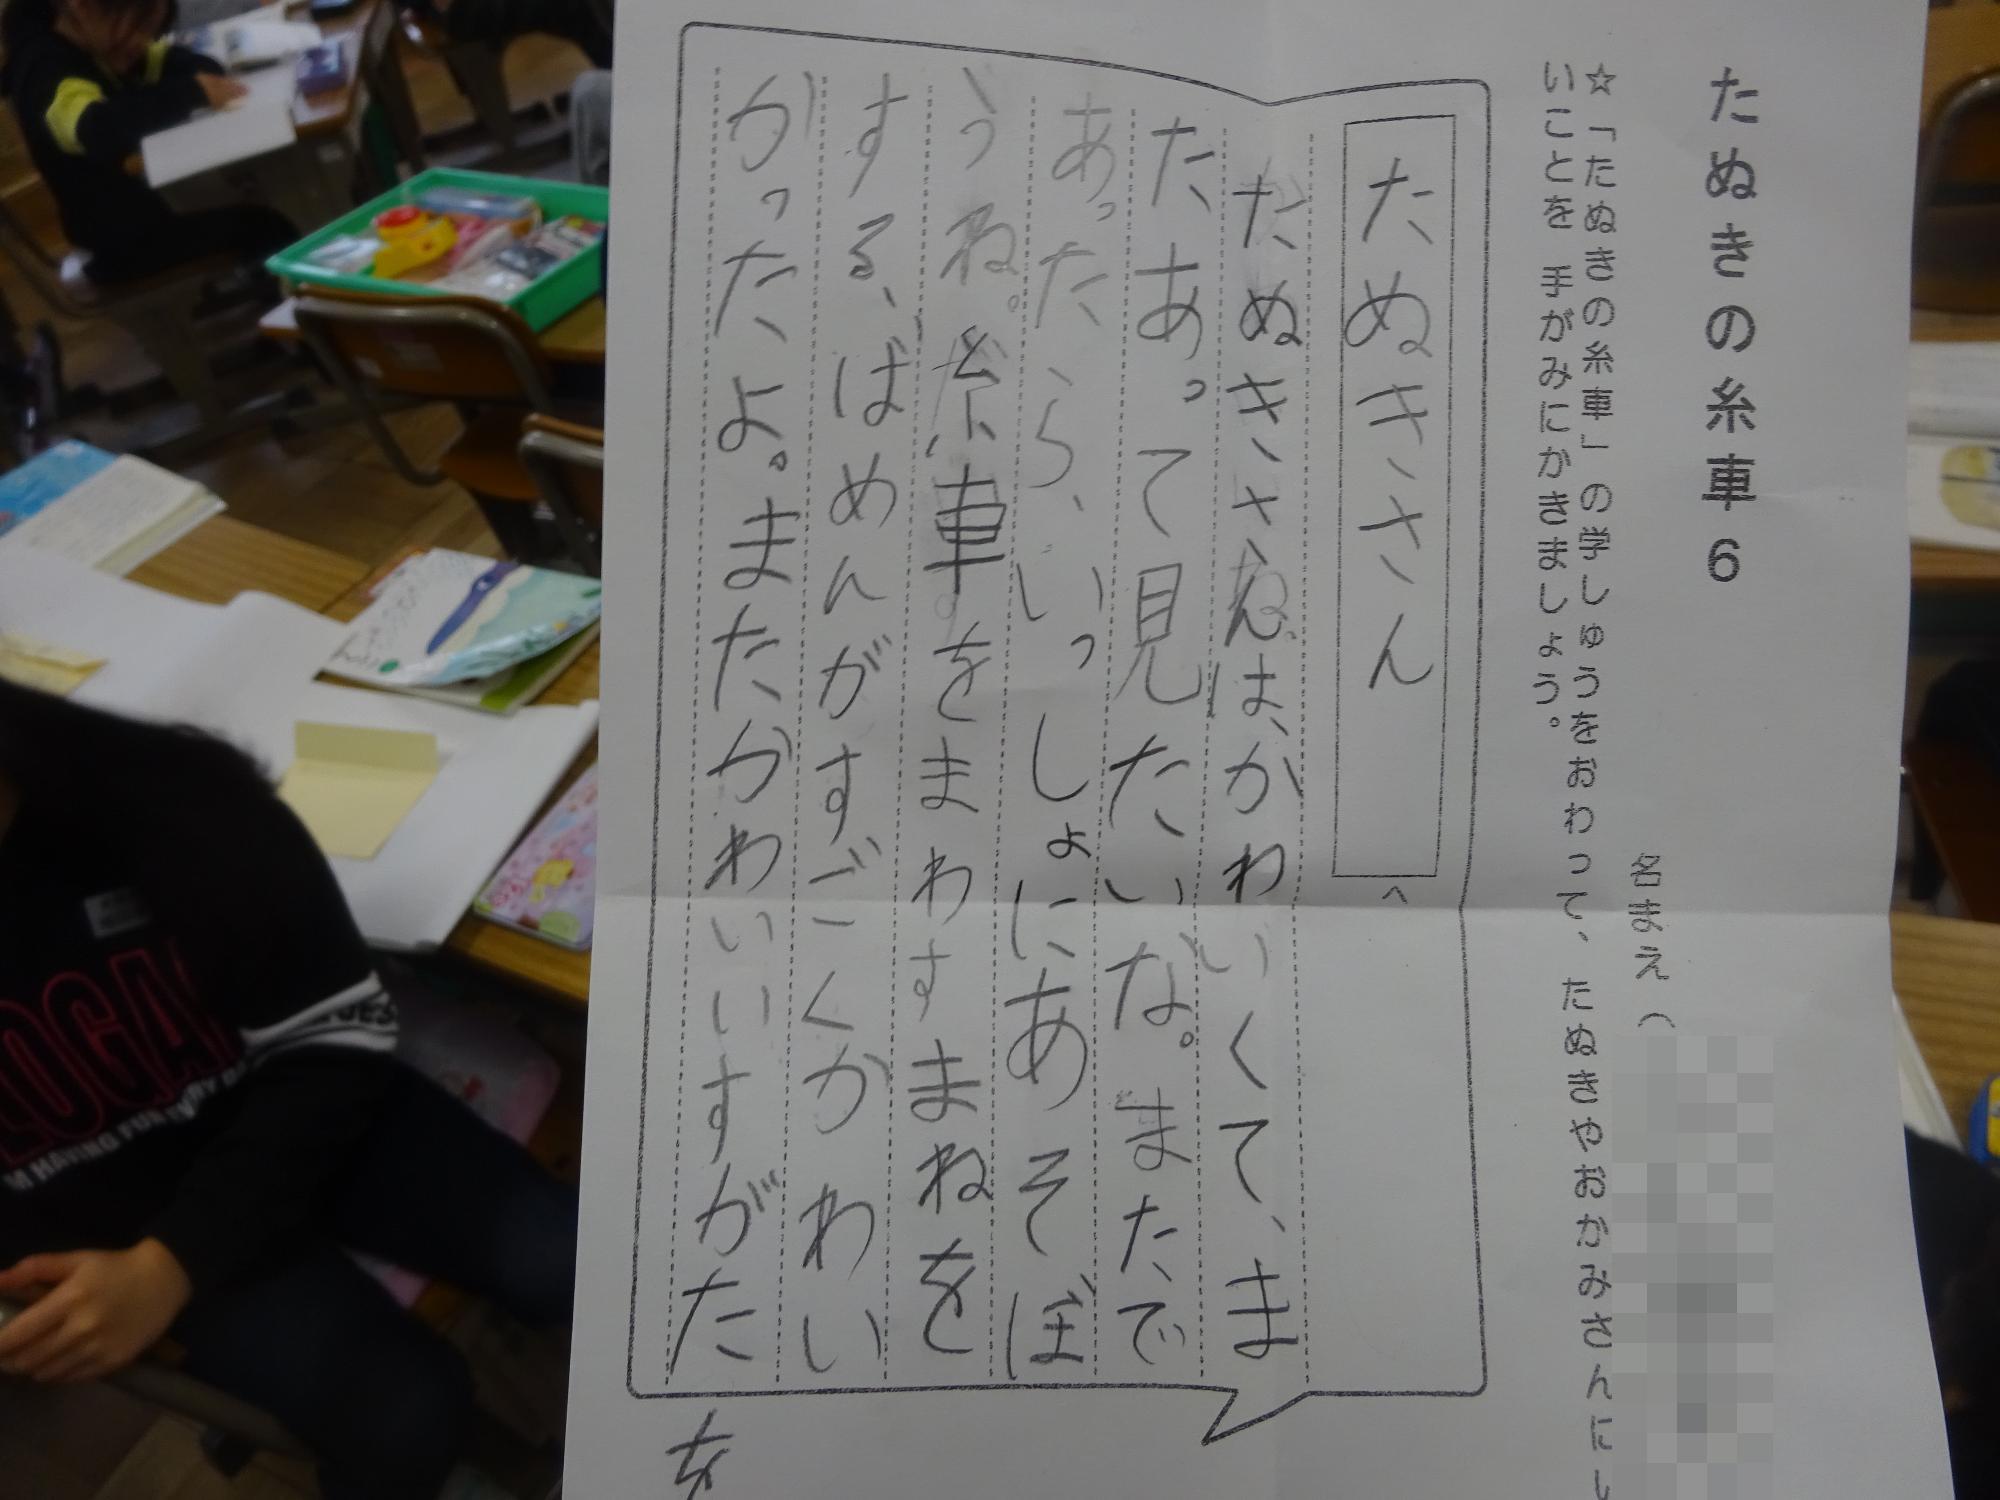 たぬきの糸車 6
名まえ（
☆「たぬきの糸車」の学しゅうをおわって、たぬきやおかみさんにし
いことを 手がみにかきましょう。
たぬきさん へ
たぬきさんは、かわいくて、ま
たあって見たいな。またで
あったら、いっしょにあそぼ
うね。糸車をまわすまねを
する、ばめんがすごくかわい
かったよ。またかわいいすがた
を